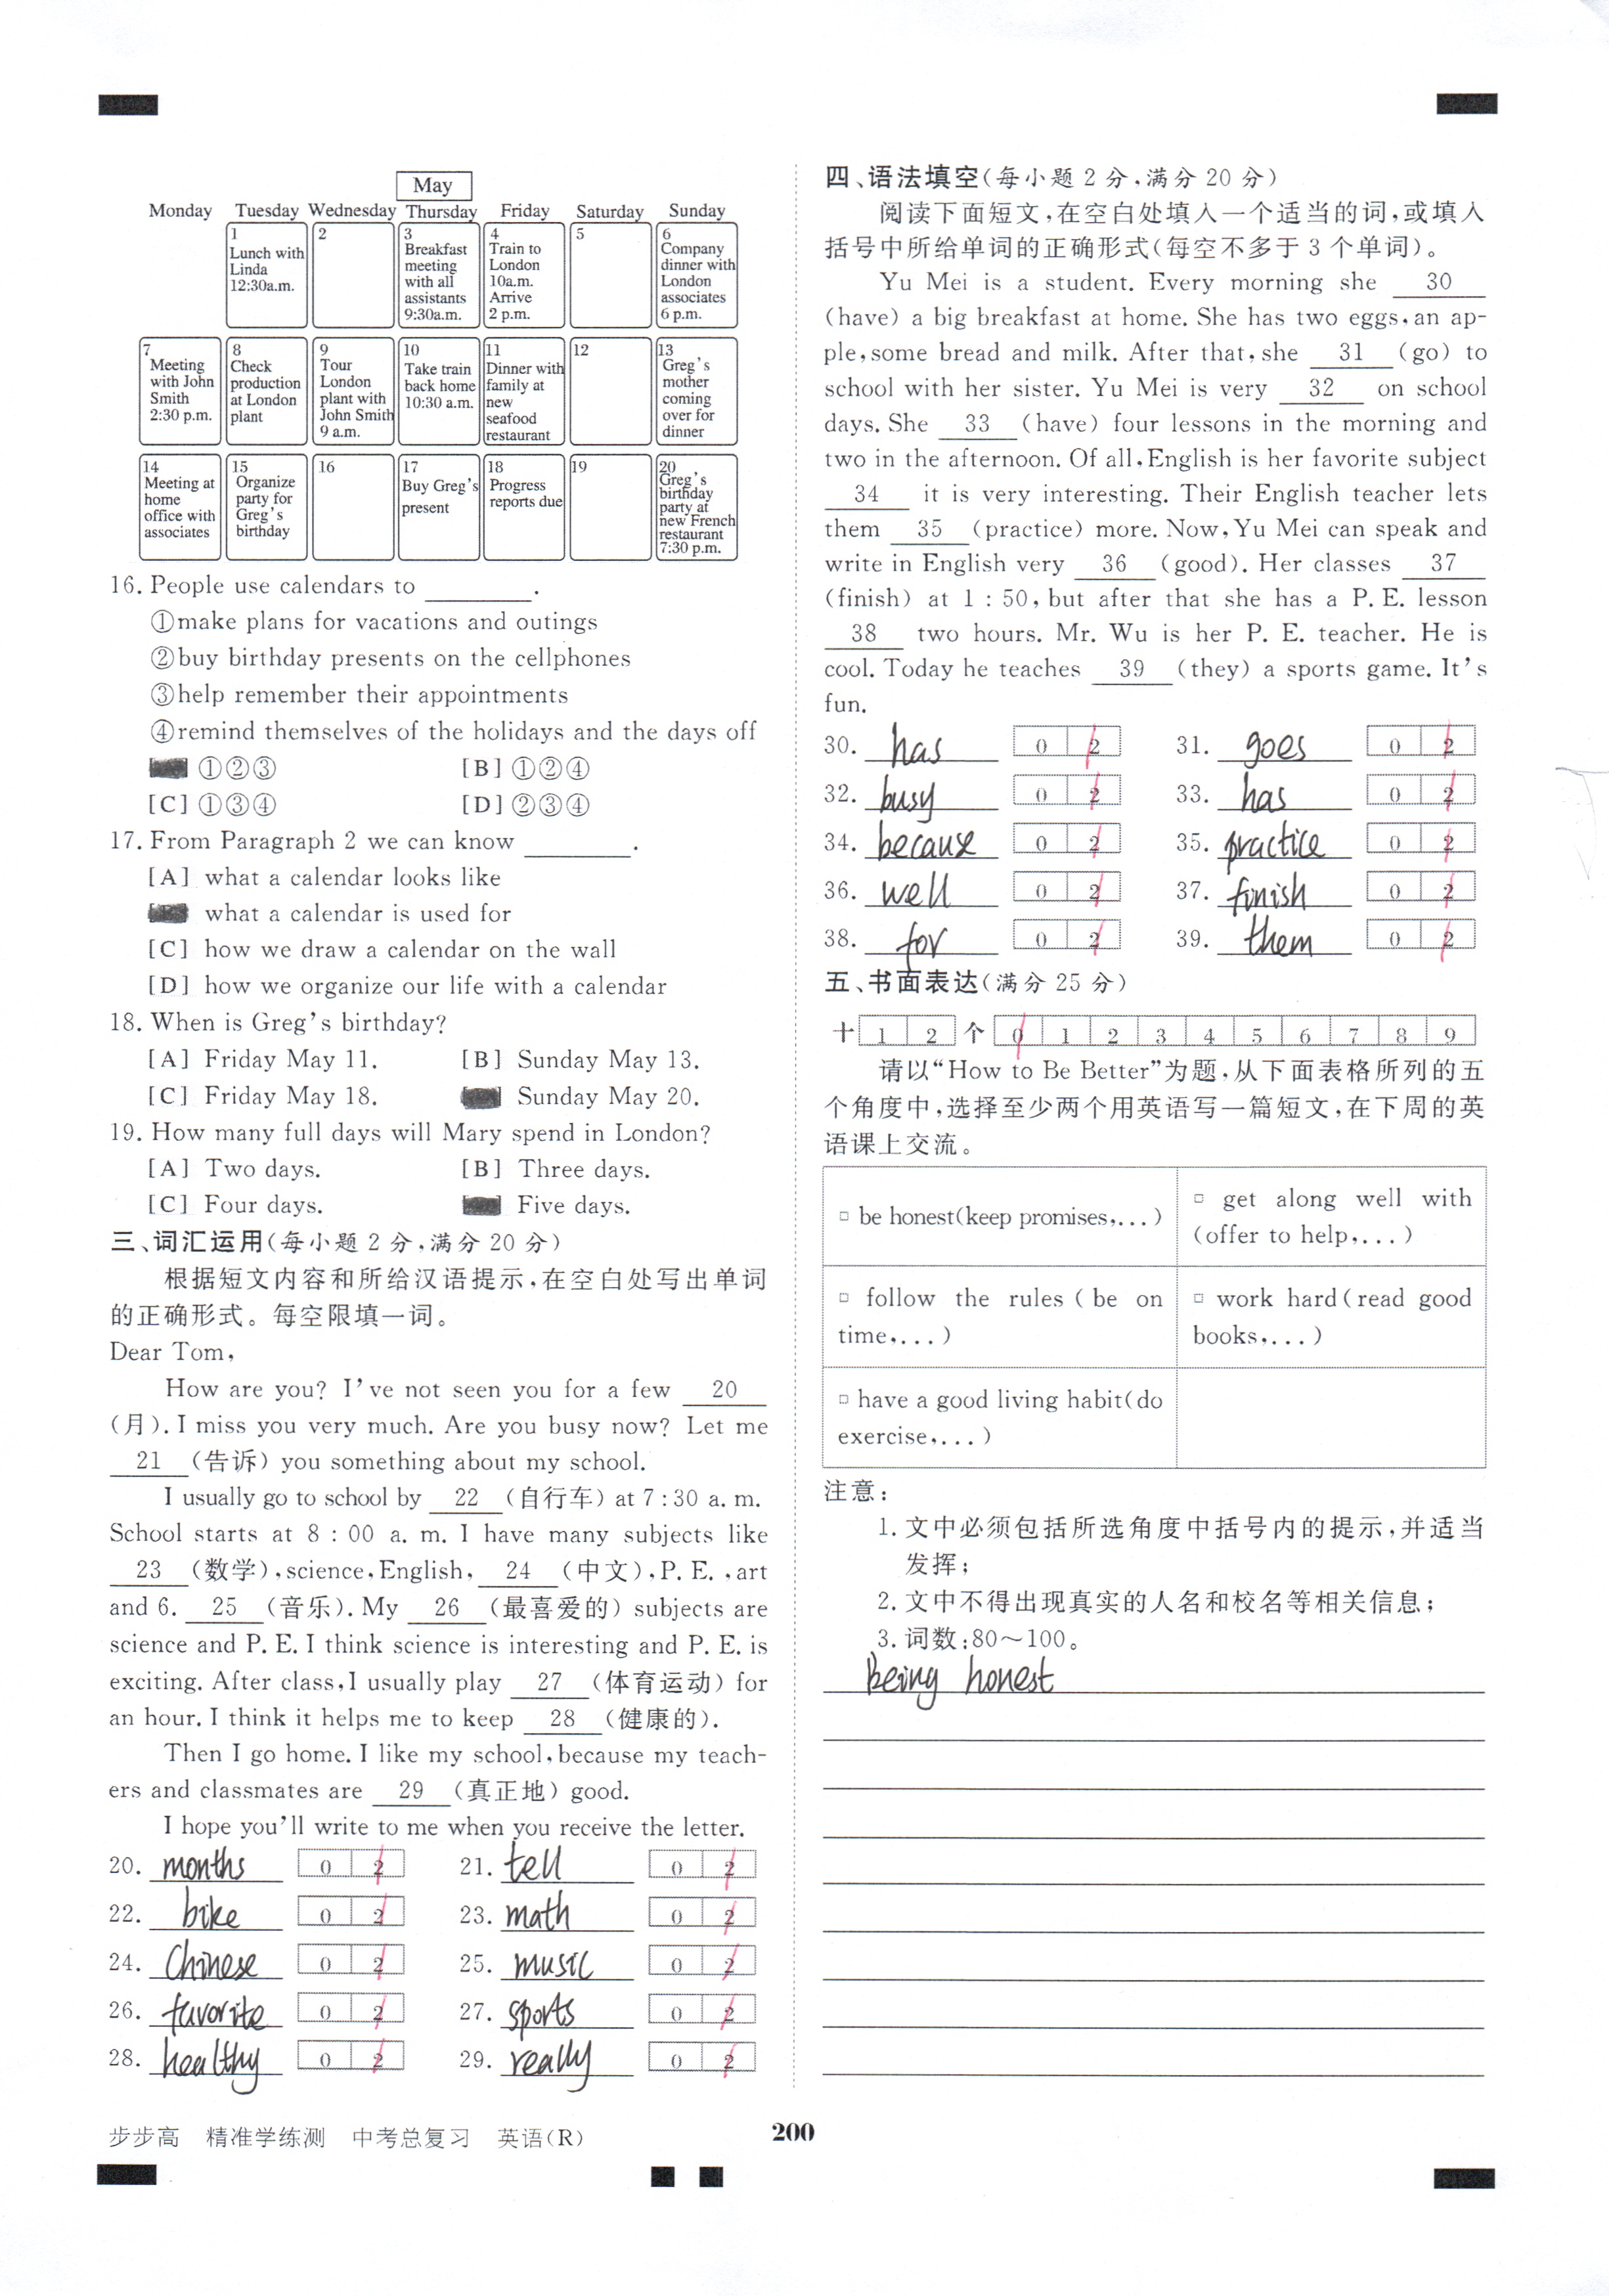 May
Monday Tuesday Wednesday Thursday Friday Saturday Sunday
1 Lunch with Linda 12:30a.m.
2
3 Breakfast meeting with all assistants 9:30a.m.
4 Train to London 10a.m. Arrive 2 p.m.
5
6 Company dinner with London associates 6 p.m.
7 Meeting with John Smith 2:30 p.m.
8 Check production at London plant
9 Tour London plant with John Smith 9 a.m.
10 Take train back home 10:30 a.m.
11 Dinner with family at new seafood restaurant
12
13 Greg's mother coming over for dinner
14 Meeting at home office with associates
15 Organize party for Greg's birthday
16
17 Buy Greg's present
18 Progress reports due
19
20 Greg's birthday party at new French restaurant 7:30 p.m.
16. People use calendars to ________.
①make plans for vacations and outings
②buy birthday presents on the cellphones
③help remember their appointments
④remind themselves of the holidays and the days off
①②③ [B] ①②④
[C] ①③④ [D] ②③④
17. From Paragraph 2 we can know ________.
[A] what a calendar looks like
what a calendar is used for
[C] how we draw a calendar on the wall
[D] how we organize our life with a calendar
18. When is Greg's birthday?
[A] Friday May 11. [B] Sunday May 13.
[C] Friday May 18. Sunday May 20.
19. How many full days will Mary spend in London?
[A] Two days. [B] Three days.
[C] Four days. Five days.
三、词汇运用(每小题 2 分,满分 20 分)
根据短文内容和所给汉语提示,在空白处写出单词
的正确形式。每空限填一词。
Dear Tom,
How are you? I've not seen you for a few 20
(月). I miss you very much. Are you busy now? Let me
21 (告诉) you something about my school.
I usually go to school by 22 (自行车) at 7:30 a. m.
School starts at 8 : 00 a. m. I have many subjects like
23 (数学), science, English, 24 (中文), P. E. , art
and 6. 25 (音乐). My 26 (最喜爱的) subjects are
science and P. E. I think science is interesting and P. E. is
exciting. After class, I usually play 27 (体育运动) for
an hour. I think it helps me to keep 28 (健康的).
Then I go home. I like my school, because my teach-
ers and classmates are 29 (真正地) good.
I hope you'll write to me when you receive the letter.
20. months 0 2 21. tell 0 2
22. bike 0 2 23. math 0 2
24. Chinese 0 2 25. music 0 2
26. favorite 0 2 27. sports 0 2
28. healthy 0 2 29. really 0 2
四、语法填空(每小题 2 分,满分 20 分)
阅读下面短文,在空白处填入一个适当的词,或填入
括号中所给单词的正确形式(每空不多于 3 个单词)。
Yu Mei is a student. Every morning she 30
(have) a big breakfast at home. She has two eggs, an ap-
ple, some bread and milk. After that, she 31 (go) to
school with her sister. Yu Mei is very 32 on school
days. She 33 (have) four lessons in the morning and
two in the afternoon. Of all, English is her favorite subject
34 it is very interesting. Their English teacher lets
them 35 (practice) more. Now, Yu Mei can speak and
write in English very 36 (good). Her classes 37
(finish) at 1 : 50, but after that she has a P. E. lesson
38 two hours. Mr. Wu is her P. E. teacher. He is
cool. Today he teaches 39 (they) a sports game. It's
fun.
30. has 0 2 31. goes 0 2
32. busy 0 2 33. has 0 2
34. because 0 2 35. practice 0 2
36. well 0 2 37. finish 0 2
38. for 0 2 39. them 0 2
五、书面表达(满分 25 分)
十 1 2 个 0 1 2 3 4 5 6 7 8 9
请以“How to Be Better”为题,从下面表格所列的五
个角度中,选择至少两个用英语写一篇短文,在下周的英
语课上交流。
□ be honest(keep promises,...)
□ get along well with
(offer to help,...)
□ follow the rules ( be on
time,...)
□ work hard(read good
books,...)
□ have a good living habit(do
exercise,...)
注意:
1. 文中必须包括所选角度中括号内的提示,并适当
发挥;
2. 文中不得出现真实的人名和校名等相关信息;
3. 词数:80~100。
Being honest
步步高 精准学练测 中考总复习 英语(R)
200